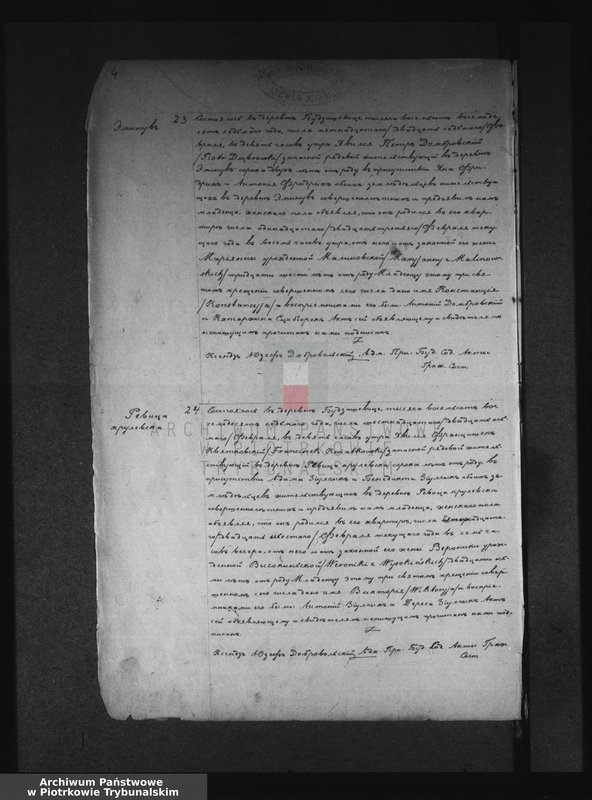 4
Эминувъ
23 Состоялось въ деревнѣ Будзишевице, тысяча восемьсотъ восемьде-
сятъ седьмаго года, числа пятнадцатаго/двадцать седьмаго/Фе-
враля въ девять часовъ утра. Явился Петръ Домбровскій
/Piotr Dąbrowski/ запасной рядовой жительствующій въ деревнѣ
Эминувъ сорока двухъ лѣтъ отъ роду въ присутствіи Яна Фри-
дриха и Антонія Фридриха обоихъ земледѣльцевъ жительствую-
щихъ въ деревнѣ Эминувъ совершеннолѣтнихъ и предъявилъ намъ
младенца, женскаго пола объявляя, что онъ родился въ его квар-
тирѣ числа одинадцатаго/двадцать третьяго/Февраля теку-
щаго года въ восемь часовъ утра, отъ него и отъ законной его жены
Маріянны урожденной Малиновской/Maryanny z Malinow-
skich/тридцати шести лѣтъ отъ роду. Младенцу этому при свя-
томъ крещеніи совершенномъ сего числа дано имя Констанція
/Konstancyja/а воспріемниками его были Антоній Домбровскій
и Катаржина Актъ сей объявляющему и свидѣтелямъ
неграмотнымъ прочитанъ нами подписанъ
Ксендзъ Юзефъ Добровольскій Адм. При. Буд. Сод. Акты
Граж. Сост.
Ревица
крулевска
24 Состоялось въ деревнѣ Будзишевице, тысяча восемьсотъ вос-
емьдесятъ седьмаго года, числа шестнадцатаго/двадцать ось-
маго/Февраля, въ девять часовъ утра. Явился Францишекъ
Квятковскій/Franciszek Kwiatkowski/запасной рядовой житель-
ствующій въ деревнѣ Ревица крулевска сорока лѣтъ отъ роду, въ
присутствіи Адама и Бенедикта обоихъ зе-
мледѣльцевъ жительствующихъ въ деревнѣ Ревица крулевска
совершеннолѣтнихъ и предъявилъ намъ младенца, женскаго пола
объявляя, что онъ родился въ его квартирѣ, числа
/двадцать шестаго/Февраля текущаго года въ семь ча-
совъ вечера, отъ него и отъ законной его жены Вероники урож-
денной Высокиньской/Weroniki z Wysokińskich/двадцати
лѣтъ отъ роду. Младенцу этому при святомъ крещеніи совер-
шенномъ сего числа дано имя Викторія/Wiktoryja/а воспріе-
мниками его были Антоній и Тереса Актъ
сей объявляющему и свидѣтелямъ неграмотнымъ прочитанъ нами под-
писанъ.
Ксендзъ Юзефъ Добровольскій Адм. При. Буд. Сод. Акты Граж.
Сост.
ARCHIWUM PAŃSTWOWE
W PIOTRKOWIE
TRYBUNALSKIM
Archiwum Państwowe
w Piotrkowie Trybunalskim